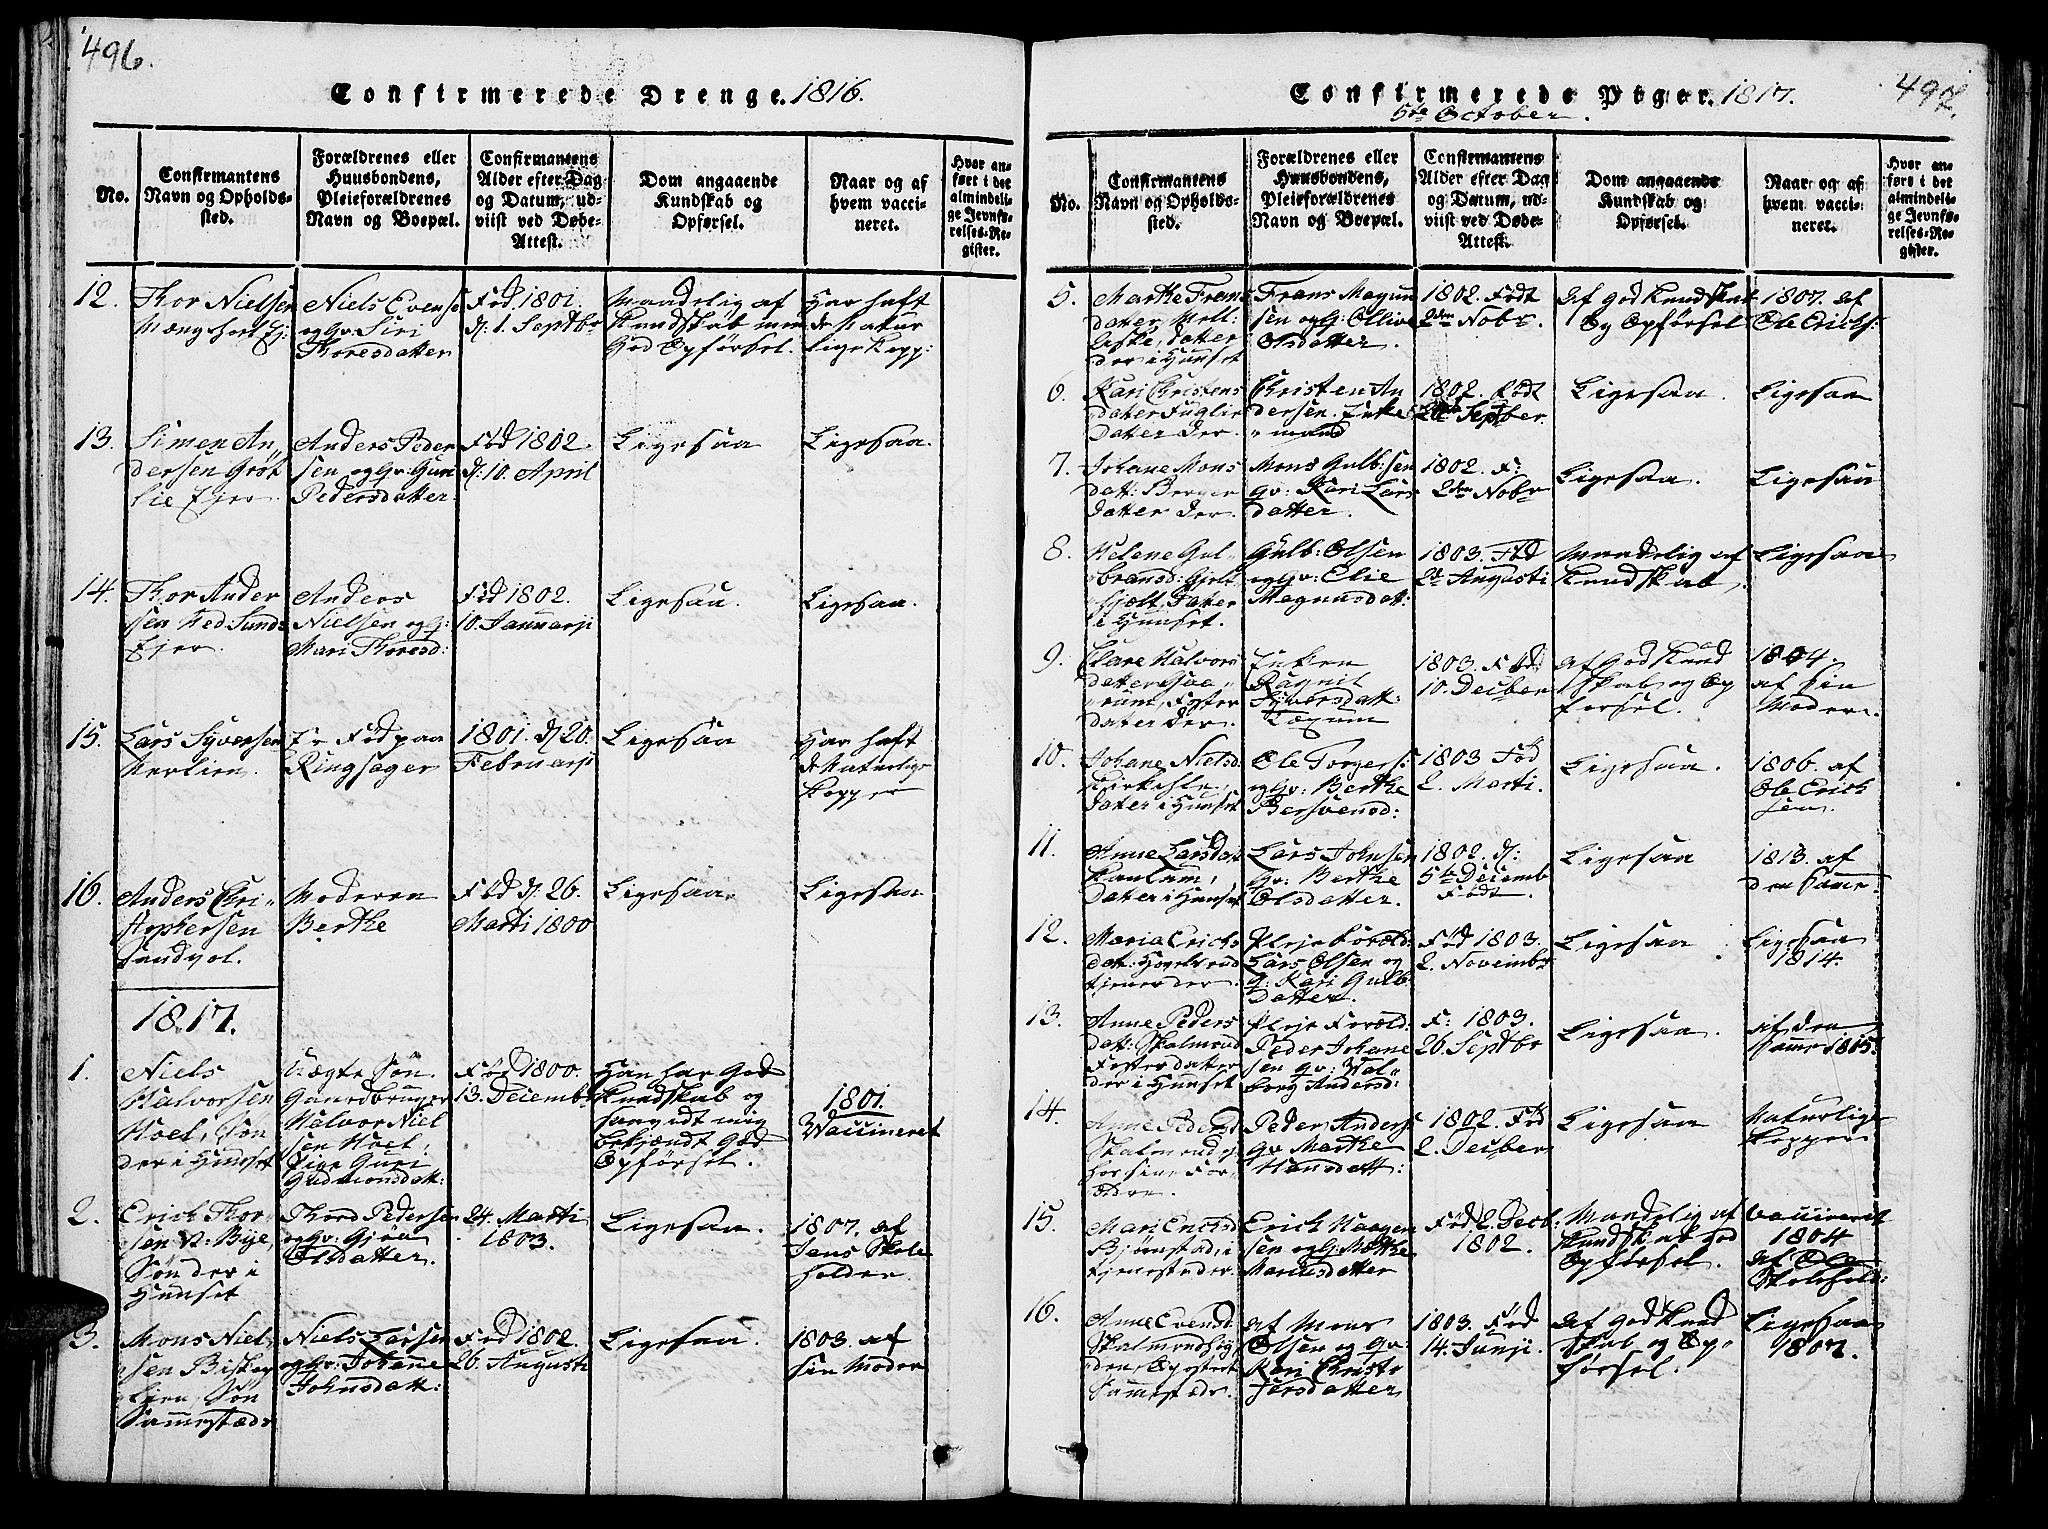 496.
Confirmerede Drenge. 1816.
No.
Confirmantens Navn og Opholdssted.
Forældrenes eller Huusbondens, Pleieforældrenes Navn og Boepæl.
Confirmantens Alder efter Dag og Datum, udviist ved Døbe-Attest.
Dom angaaende Kundskab og Opførsel.
Naar og af hvem vaccineret.
Hvor anført i det almindelige Jevnførelses-Register.
12.
Thor Nielsen
Niels Evens
og Qv: Siri
Thoresdatter
Fød 1801.
d: 1. Septbr
Maadelig af
Kundskab men
God Opførsel.
Har haft
de Natur
lige Kopp:
13.
Simen An
dersen Grøt
lie Ejer.
Anders Peder
sen og Qv: Gun
Pedersdatter.
Fød 1802.
d: 10. April
Ligesaa
Ligesaa.
14.
Thor Ander
sen Ved Sund
Ejer.
Anders
Nielsen og Q:
Mari Thoresd:
Fød 1802.
10. Januarji
Ligesaa.
Ligesaa.
15.
Lars Syversen
Fød paa
Ringsager
1801. d. 20.
Februarji
Ligesaa
Har haft
de Naturlige
Kopper
16.
Anders Chri
stophersen
Sandvol.
Moderen
Berthe
Fød d: 26.
Marti 1800
Ligesaa.
Ligesaa
1817.
1.
Niels
Halvorsen
Hoel, Søn
der i Huuset
Uægte Søn.
Gaardbruger
Halvor Niel
sen Hoel.
Pige Guri
Gudmonsdatt:
Fød 1800.
13. Decemb:
Han har God
Kundskab og
saavidt mig
bekiendt God
Opførsel.
1801.
Vaccineret
2.
Erich Thor
sen N: Bye,
Søn der i
Huuset
Thord Pedersen
og Qv: Gjøa
Olsdatter.
24. Marti
1803.
Ligesaa.
1807. af
Jens Skole
holder.
3.
Mons Niel
sen Biskop
lien Søn
Sammestæds
Niels Larsen
og Qv: Johane
Johnsdatt:
Fød 1802
26. Augusti
Ligesaa.
1803. af
sin Moder
497.
Confirmerede Piger. 1817.
5te October.
No.
Confirmantens Navn og Opholdssted.
Forældrenes eller Huusbondens, Pleieforældrenes Navn og Boepæl.
Confirmantens Alder efter Dag og Datum, udviist ved Døbe-Attest.
Dom angaaende Kundskab og Opførsel.
Naar og af hvem vaccineret.
Hvor anført i det almindelige Jevnførelses-Register.
5.
Marthe Frans
datter
datter
der i Huuset
Frans Magnu
sen og Q: Ollive
Olsdatter.
1802. Født
2den Nobr.
Af god Kundskab
Og Opførsel
1807. af
Ole Erichs:
6.
Kari Christens
datter Fuglie
Datter der.
Christen An
dersen. Enke
mand
1802. Født
Septber.
Ligesaa.
Ligesaa
7.
Johane Mons
datt: Berger
Datter der.
Mons Gulb:sen
Qv: Kari Lars
datter.
1802. F:
2den Nobr
Ligesaa.
Ligesaa
8.
Helene Gul
bransd:
Datter
i Huuset.
Gulb: Olsen
og Qv: Elie
Magnusdat:
1803. Fød
2de Augusti
Maadelig af
Kundskab.
Ligesaa
9.
Halvors
datter
Foster
datter der.
Enken
Ragnil
Syversdatt:
1803. Fød
10. Decber
Af God Kund
skab og Op
førsel.
1804.
af sin
Moder.
10.
Johane Nielsd
Datter i Huuset
Ole Torgers:
og Qv: Berthe
Bersvensd:
1803 Fød
2. Marti.
Ligesaa.
1806. af
Ole Erich
sen.
11.
Anne Larsdat
Datter i Huuset
Lars Johnsen
Qv: Berthe
Olsdatter.
1802. d:
5te Decemb
Født.
Ligesaa
1813. af
den Samme.
12.
Maria Erichs
datt: Hovelsrud
tiener der.
Pleje Foræld:
Lars Olsen og
Q: Kari Gulb
Datter.
Fød 1803.
2. Novembr
Ligesaa
Ligesaa
1814.
13.
Anne Peders
datt: Skalmrud
Foster datter
der i Huuset
Pleje Foræld:
Peder Johane
sen Qv: Wal
borg Andersd:
F: 1803.
26. Septbr
Ligesaa.
af den
Samme 1815.
14.
Anne Pedersd
Skalmrud,
hos sine For
ældre.
Peder Anders
Qv Marthe
Hansdatt:
1802. Fød
2. Decber
Ligesaa
Naturlige
Kopper
15.
Mari Erichsd
Bjørnstad, i
tjeneste der.
Erich Haagen
sen og Q: Marthe
Mariusdatter
Fød 2. Decb:
1802.
Maadelig af
Kundskab God
Opførsel.
Vaccineret
1804
af Ole
Skolehold:
16.
Anne Evensd
Sammestæds.
af Mons
Olsen og Qv:
Kari Christo
fersdatter
1803. Fød
14. Junji.
Af God Kund
skab og Op
førsel.
Ligesaa
1807.